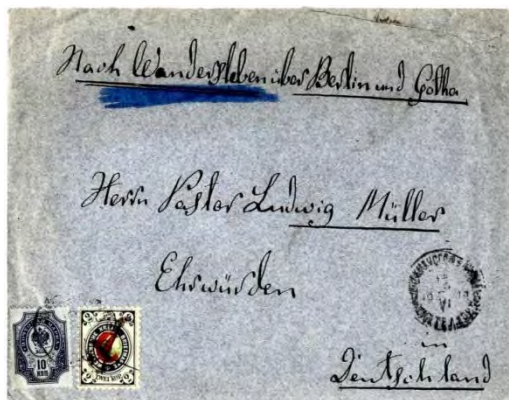 Nach Wandersleben über Berlin und Gotha
Herrn Pastor Ludwig Müller
Ehrwürden
in
Deutschland
10
КОП
2
2
2
2